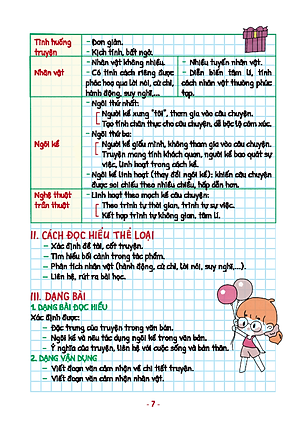 Tình huống – Đơn giản.
truyện – Kịch tính, bất ngờ.
– Nhân vật không nhiều. – Nhiều tuyến nhân vật.
Nhân vật – Có tính cách riêng được – Diễn biến tâm lí, tính
phác hoạ qua lời nói, cử chỉ, cách nhân vật thường phức
hành động, suy nghĩ,... tạp.
– Ngôi thứ nhất:
Người kể xưng "tôi", tham gia vào câu chuyện.
Tạo tính chân thực cho câu chuyện, dễ bộc lộ cảm xúc.
– Ngôi thứ ba:
Ngôi kể Người kể giấu mình, không tham gia vào câu chuyện.
Truyện mang tính khách quan, người kể bao quát sự
việc, linh hoạt trong cách kể.
– Ngôi kể linh hoạt (thay đổi ngôi kể): khiến câu chuyện
được soi chiếu theo nhiều chiều, hấp dẫn hơn.
Nghệ thuật – Linh hoạt theo mạch kể câu chuyện:
trần thuật Theo trình tự thời gian, trình tự sự việc.
Kết hợp trình tự không gian, tâm lí.
II. CÁCH ĐỌC HIỂU THỂ LOẠI
– Xác định đề tài, cốt truyện.
– Tìm hiểu bối cảnh trong tác phẩm.
– Phân tích nhân vật (hành động, cử chỉ, lời nói, suy nghĩ,...).
– Liên hệ, rút ra bài học.
III. DẠNG BÀI
1. DẠNG BÀI ĐỌC HIỂU
Xác định được:
– Đặc trưng của truyện trong văn bản.
– Ngôi kể và nêu tác dụng ngôi kể trong văn bản.
– Ý nghĩa của truyện, liên hệ với cuộc sống và bản thân.
2. DẠNG VẬN DỤNG
– Viết đoạn văn cảm nhận về chi tiết truyện.
– Viết đoạn văn cảm nhận nhân vật.
- 7 -